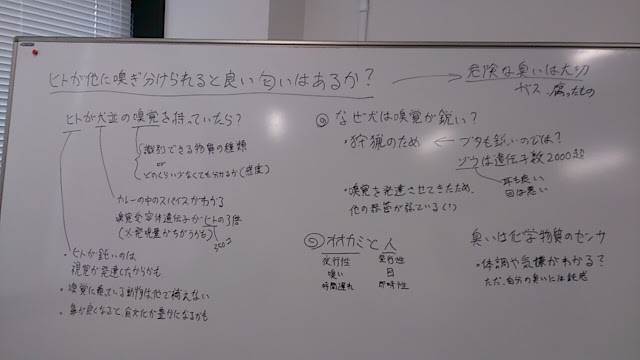 ヒトが他に嗅ぎ分けられると良い匂いはあるか?
危険な臭いは大切
ガス、腐ったもの
ヒトが犬並の嗅覚を持っていたら?
識別できる物質の種類
or
どのくらい少なくても分かるか(感度)
カレーの中のスパイスがわかる
嗅覚受容体遺伝子がヒトの3倍
(×発現量がちがうかも)
350コ
・ヒトが鈍いのは
視覚が発達したからかも
・嗅覚に頼っている動物は他で補えない
・鼻が良くなると、食文化が豊かになるかも
◎なぜ犬は嗅覚が鋭い?
・狩猟のため ← ブタも鋭いのでは?
ゾウは遺伝子数2000超
耳も良い
目は悪い
・嗅覚を発達させてきたため、
他の器官が弱ている(?)
◎オオカミと人
夜行性 昼行性
嗅い 目
時間遅れ 即時性
臭いは化学物質のセンサ
・体調や気嫌がわかる?
ただ、自分の臭いには鈍感